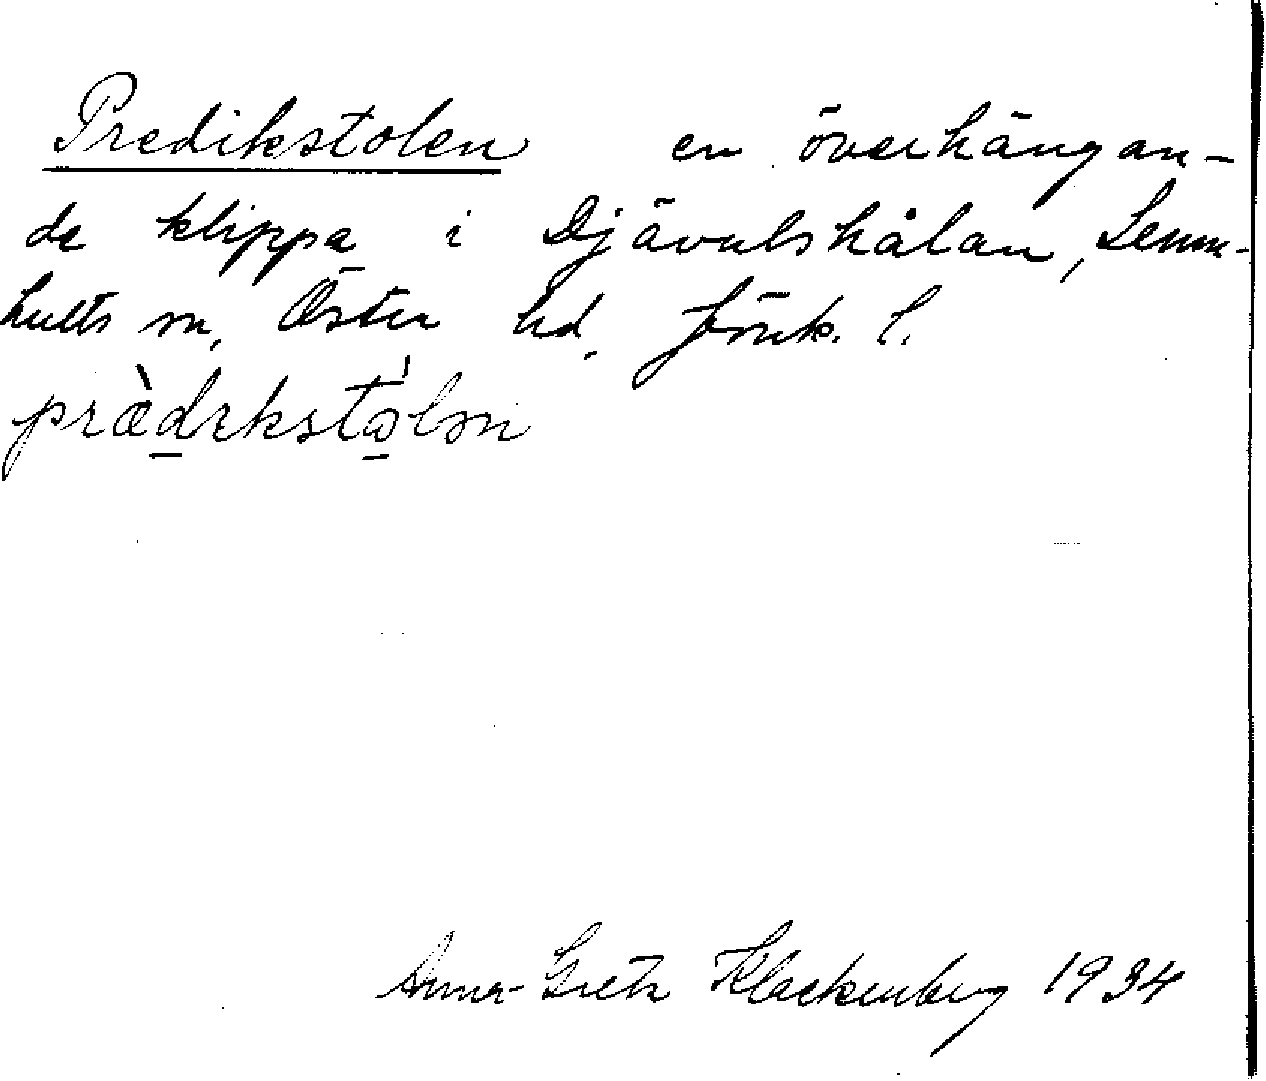 Predikstolen en överhängan-
de klippa i Djävulshålan, Lemn-
hults sn, Öster hd, Jönk. l.
prædɪkstɷlən
Anna-Greta Klackenberg 1934